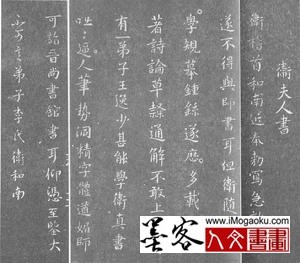 衛夫人書
衛稽首和南近奉勑寫急
遂不得與師書耳但衛随
學規摹鍾繇遂歷多載
著詩論草隸通解不敢上
有一弟子王逸少甚能學衛真書
咄〻逼人筆勢洞精字體遒媚師
可詣晉尚書館書耳仰憑至鑒大
不可言弟子李氏衛和南
www.iMogaoku.com
墨客